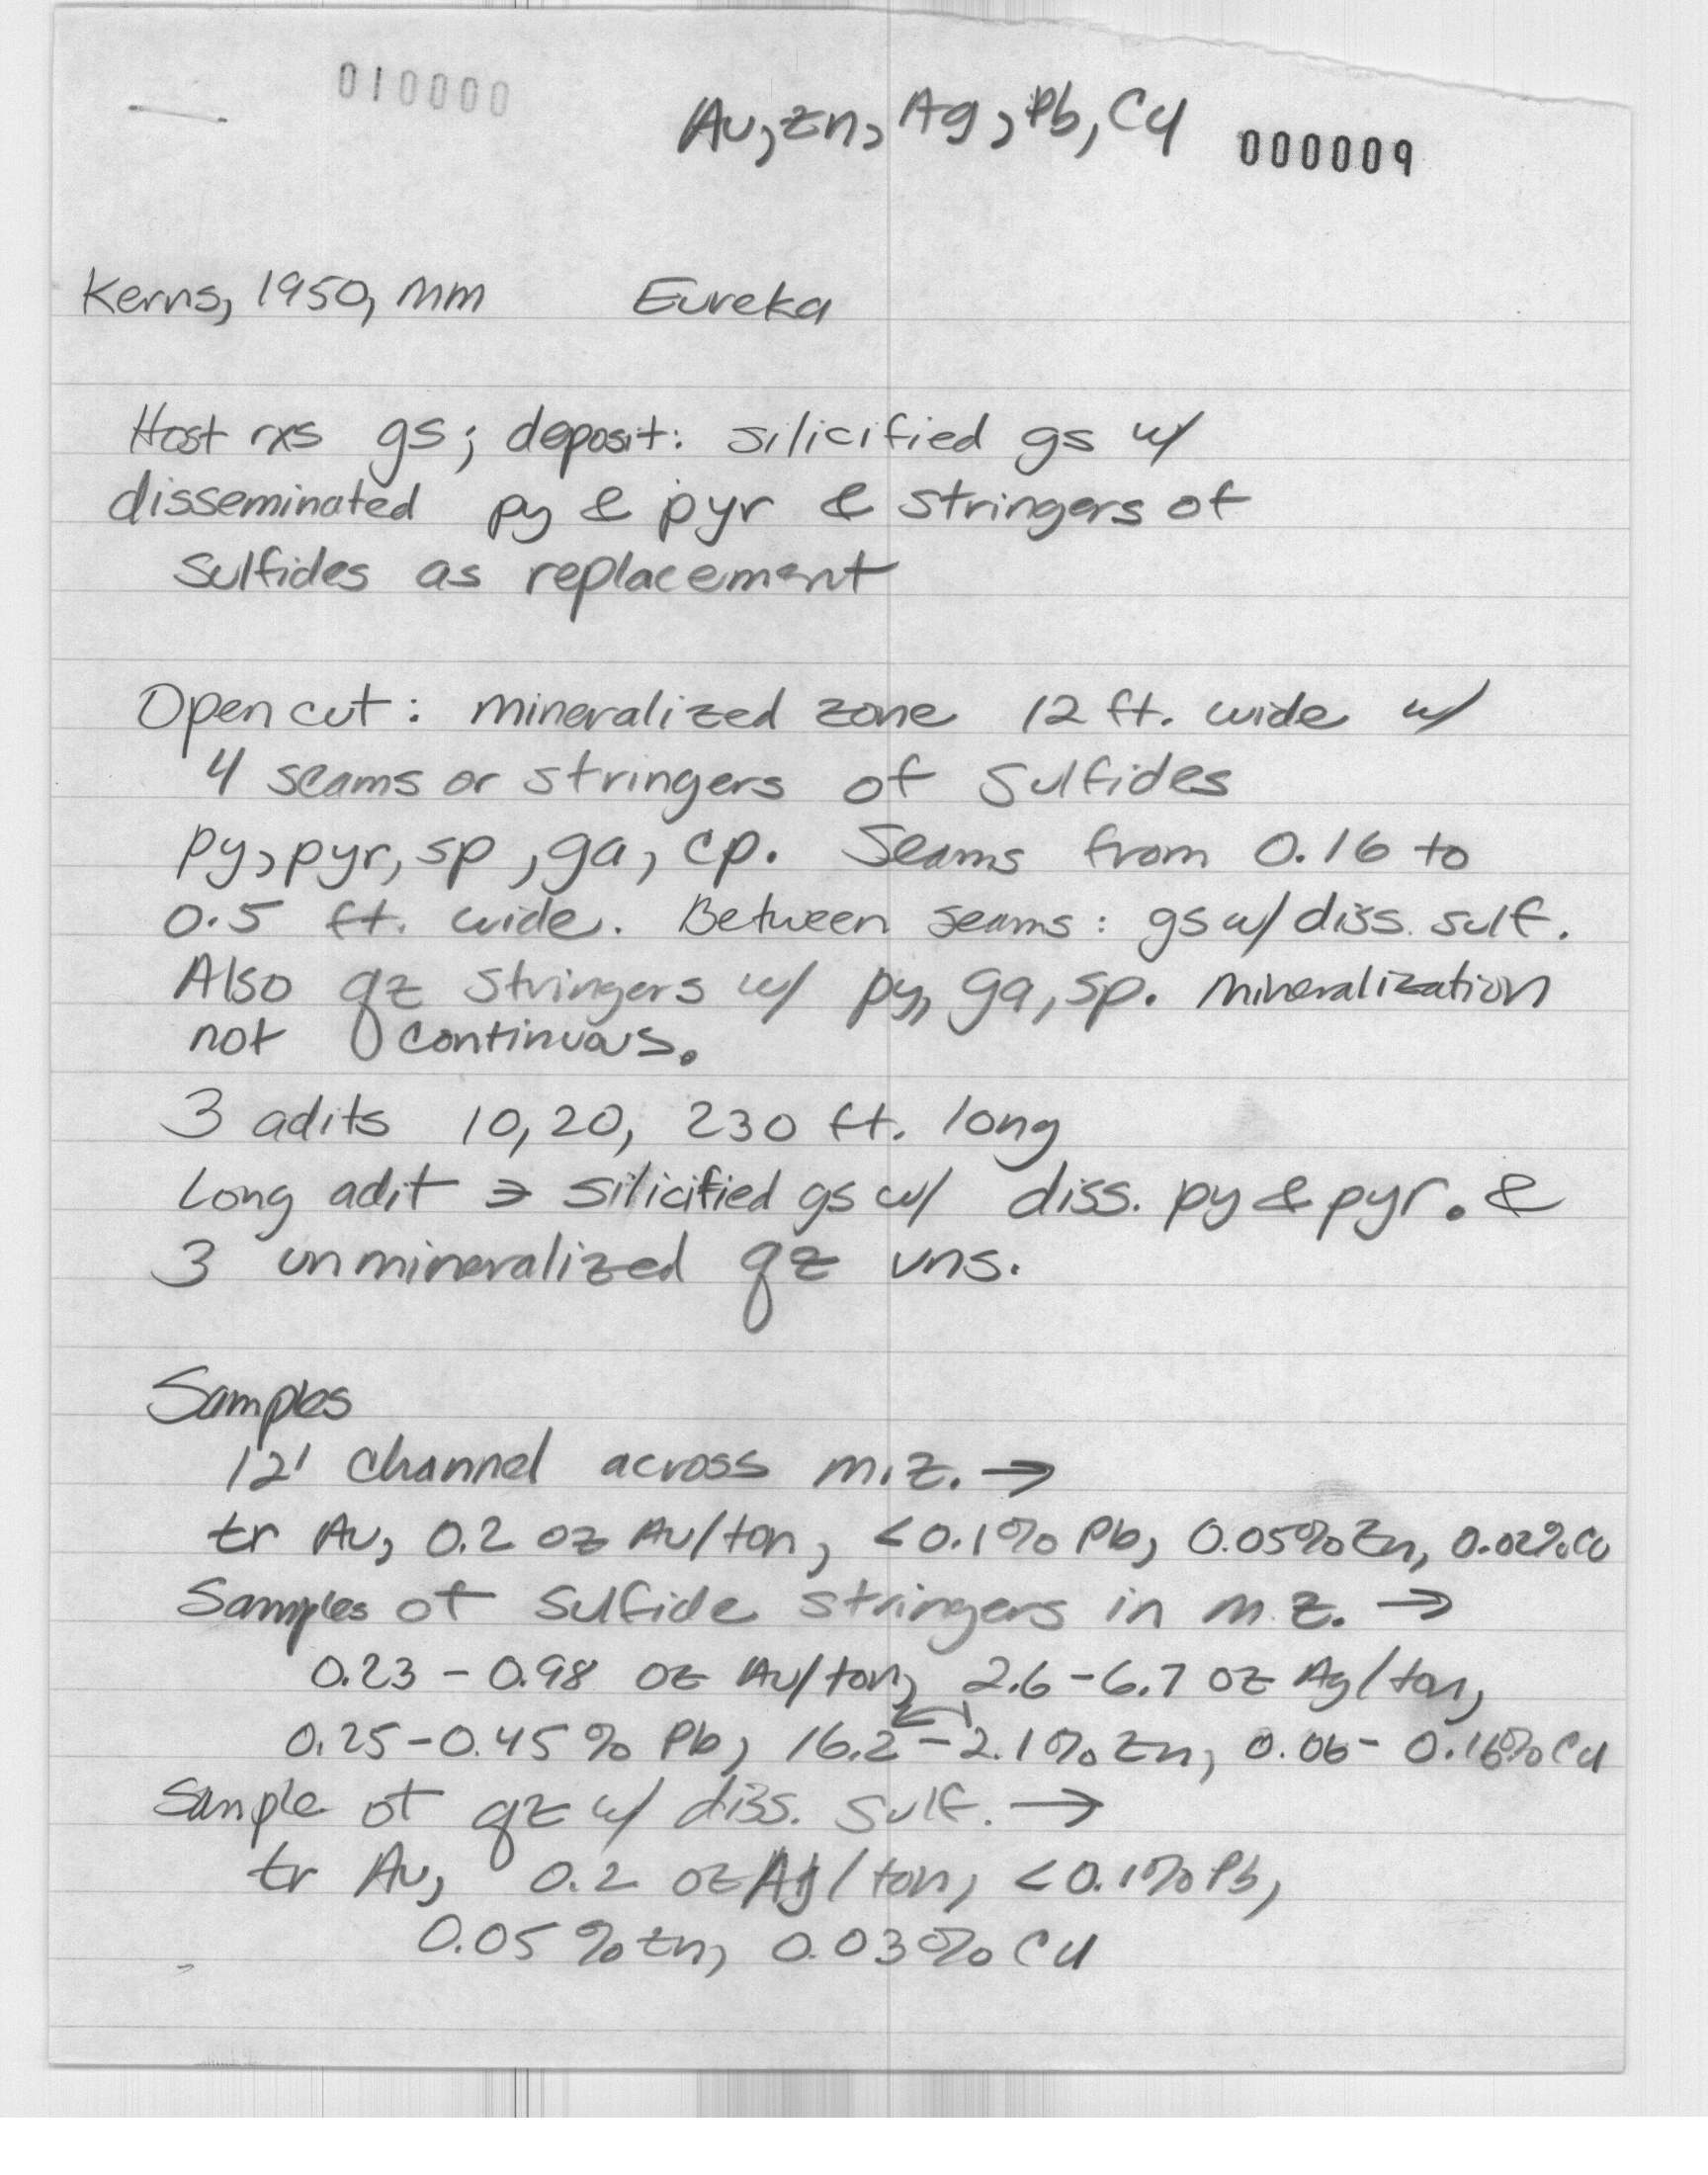 010000
Au, Zn, Ag, Pb, Cu 000009
Kerns, 1950, MM Eureka
Host rxs gs; deposit: silicified gs w/
disseminated py & pyr & stringers of
sulfides as replacement
Open cut: mineralized zone 12 ft. wide w/
4 seams or stringers of sulfides
py, pyr, sp, ga, cp. Seams from 0.16 to
0.5 ft. wide. Between seams: gs w/ diss. sulf.
Also qz stringers w/ py, ga, sp. Mineralization
not continuous.
3 adits 10, 20, 230 ft. long
Long adit → silicified gs w/ diss. py & pyr. &
3 unmineralized qz vns.
Samples
12' channel across m.z. →
tr Au, 0.2 oz Au/ton, <0.1% Pb, 0.05% Zn, 0.02% Cu
Samples of sulfide stringers in m.z. →
0.23 - 0.98 oz Au/ton, 2.6 - 6.7 oz Ag/ton,
0.25 - 0.45% Pb, 16.2 - 2.1% Zn, 0.06 - 0.16% Cu
Sample of qz w/ diss. sulf. →
tr Au, 0.2 oz Ag/ton, <0.1% Pb,
0.05% Zn, 0.03% Cu